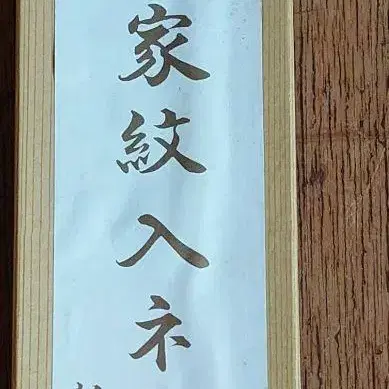 家紋入ネ